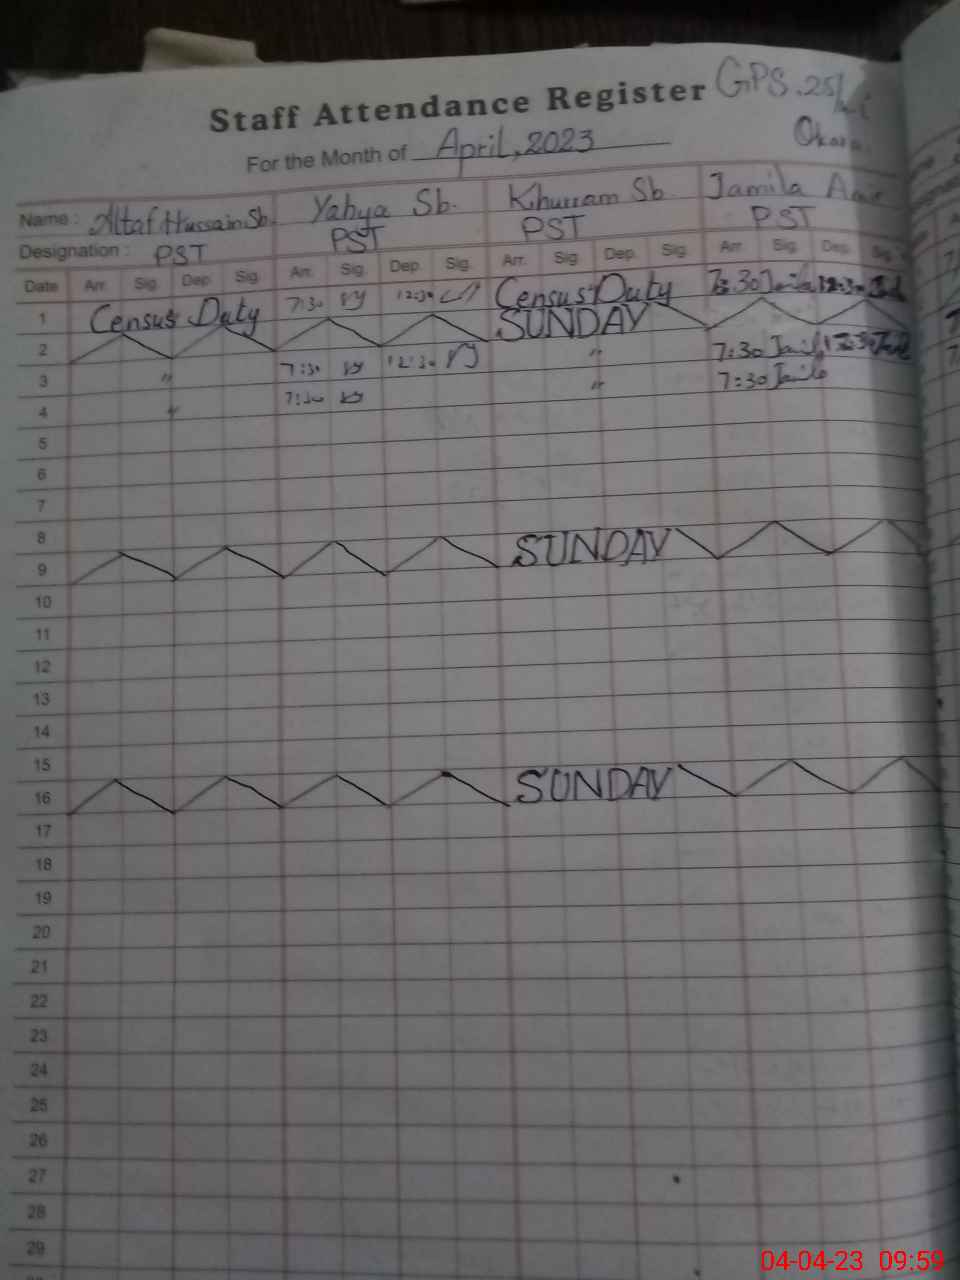 Staff Attendance Register GPS.25/
Okara
For the Month of April, 2023
Name : Altaf Hussain Sb. Yahya Sb. Khurram Sb Jamila
Designation : PST PST PST PST
Date Arr. Sig. Dep. Sig. Arr. Sig. Dep. Sig. Arr. Sig. Dep. Sig. Arr. Sig. Dep. Sig.
1 Census Duty 7:30 12:30 Census Duty 7:30 Jamila 12:30
2 SUNDAY
3 " 7:30 12:30 " 7:30 Jamila 12:30
4 " 7:30 " 7:30 Jamila
5
6
7
8
9 SUNDAY
10
11
12
13
14
15
16 SUNDAY
17
18
19
20
21
22
23
24
25
26
27
28
29
04-04-23 09:59